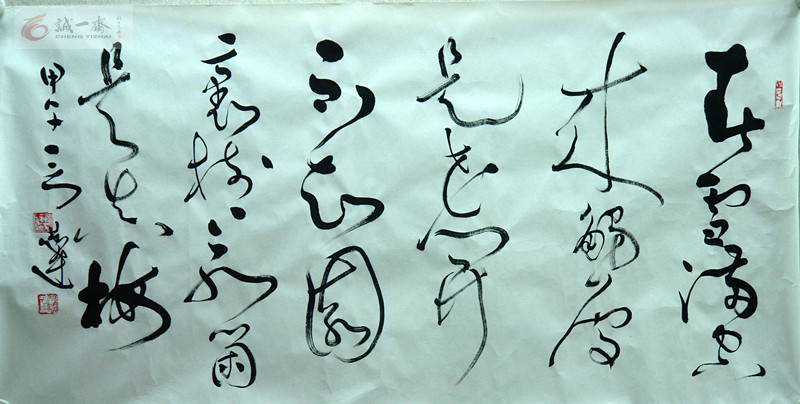 誠一齋
CHENG YIZHAI
春雪滿空
來觸處
是花開
不知園
裏樹箇
是真梅
甲午